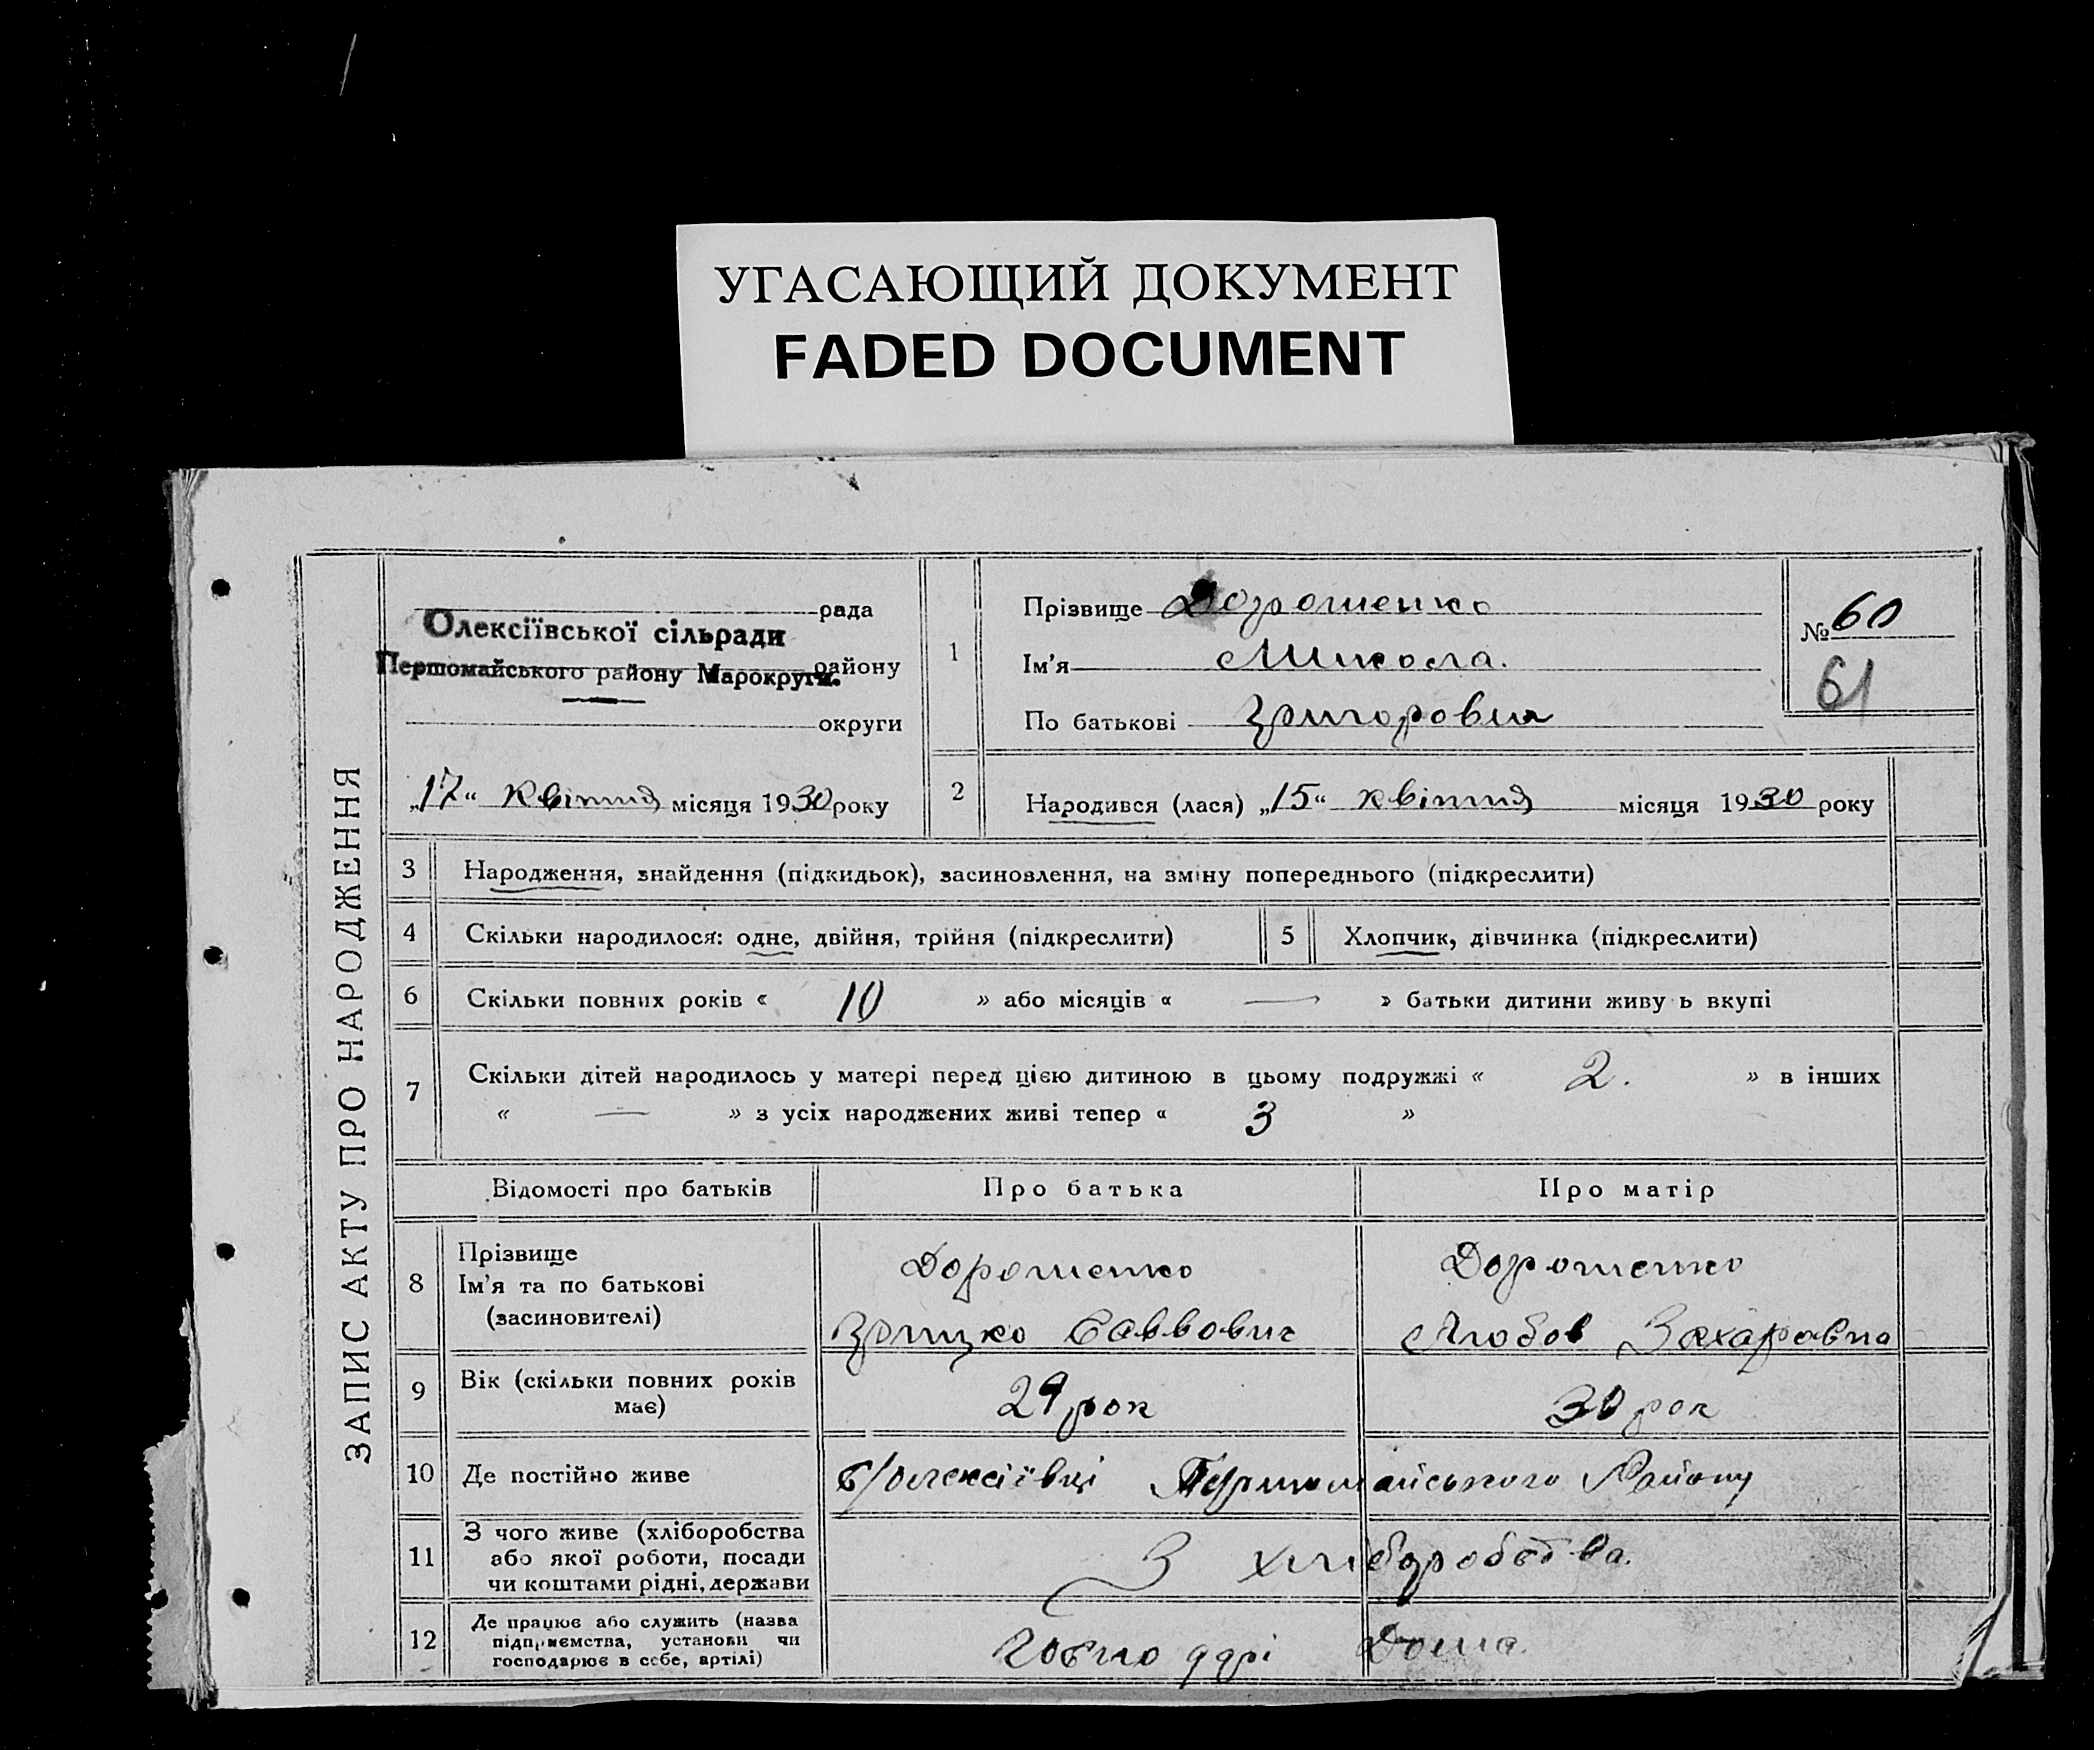 УГАСАЮЩИЙ ДОКУМЕНТ
FADED DOCUMENT
ЗАПИС АКТУ ПРО НАРОДЖЕННЯ
рада
Олексіївської сільради
району
Першомайського району Марокруги.
округи
„17“ квітня місяця 1930 року
1
Прізвище Дорошенко
Ім’я Микола.
По батькові Григорович
№ 60
61
2 Народився (лася) „15“ квітня місяця 1930 року
3 Народження, знайдення (підкидьок), засиновлення, на зміну попереднього (підкреслити)
4 Скільки народилося: одне, двійня, трійня (підкреслити) 5 Хлопчик, дівчинка (підкреслити)
6 Скільки повних років « 10 » або місяців « — » батьки дитини живу ь вкупі
7 Скільки дітей народилось у матері перед цією дитиною в цьому подружжі « 2. » в інших
« — » з усіх народжених живі тепер « 3 »
Відомості про батьків Про батька Про матір
8 Прізвище Дорошенко Дорошенко
Ім’я та по батькові
(засиновителі) Грицко Саввович Любов Захаровна
9 Вік (скільки повних років
має) 29 рок 30 рок
10 Де постійно живе с/Олексіївці Першомайського Району
11 З чого живе (хліборобства
або якої роботи, посади
чи коштами рідні, держави З хліборобства.
12 Де працює або служить (назва
підприємства, установи чи
господарює в себе, артілі) Дома.